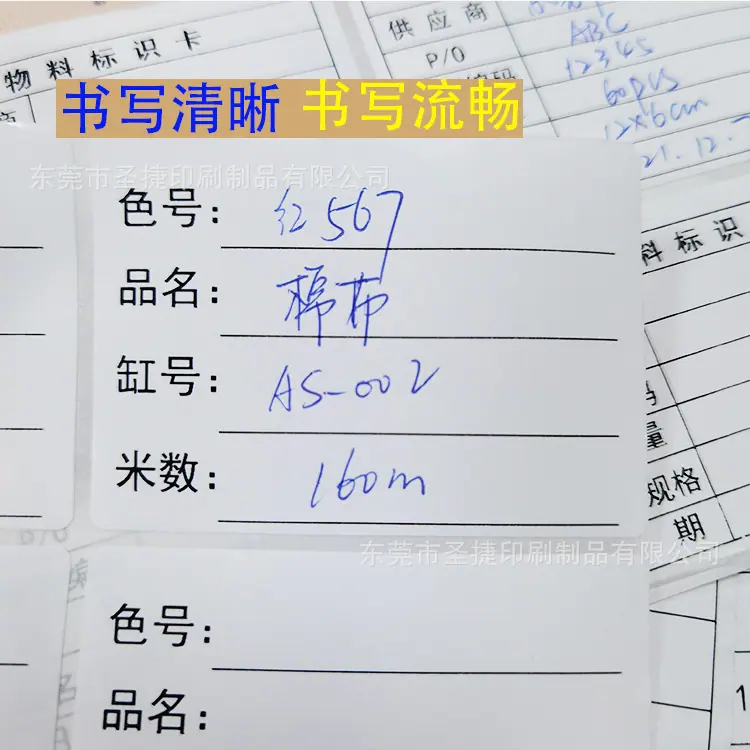 物料标识卡
供应商
ABC
P/O
12345
60pcs
12×6cm
21.12.
书写清晰 书写流畅
东莞市圣捷印刷制品有限公司
色号: 红567
品名: 棉布
缸号: AS-002
米数: 160m
料标识
量
规格
期
东莞市圣捷印刷制品有限公司
色号:
品名:
1